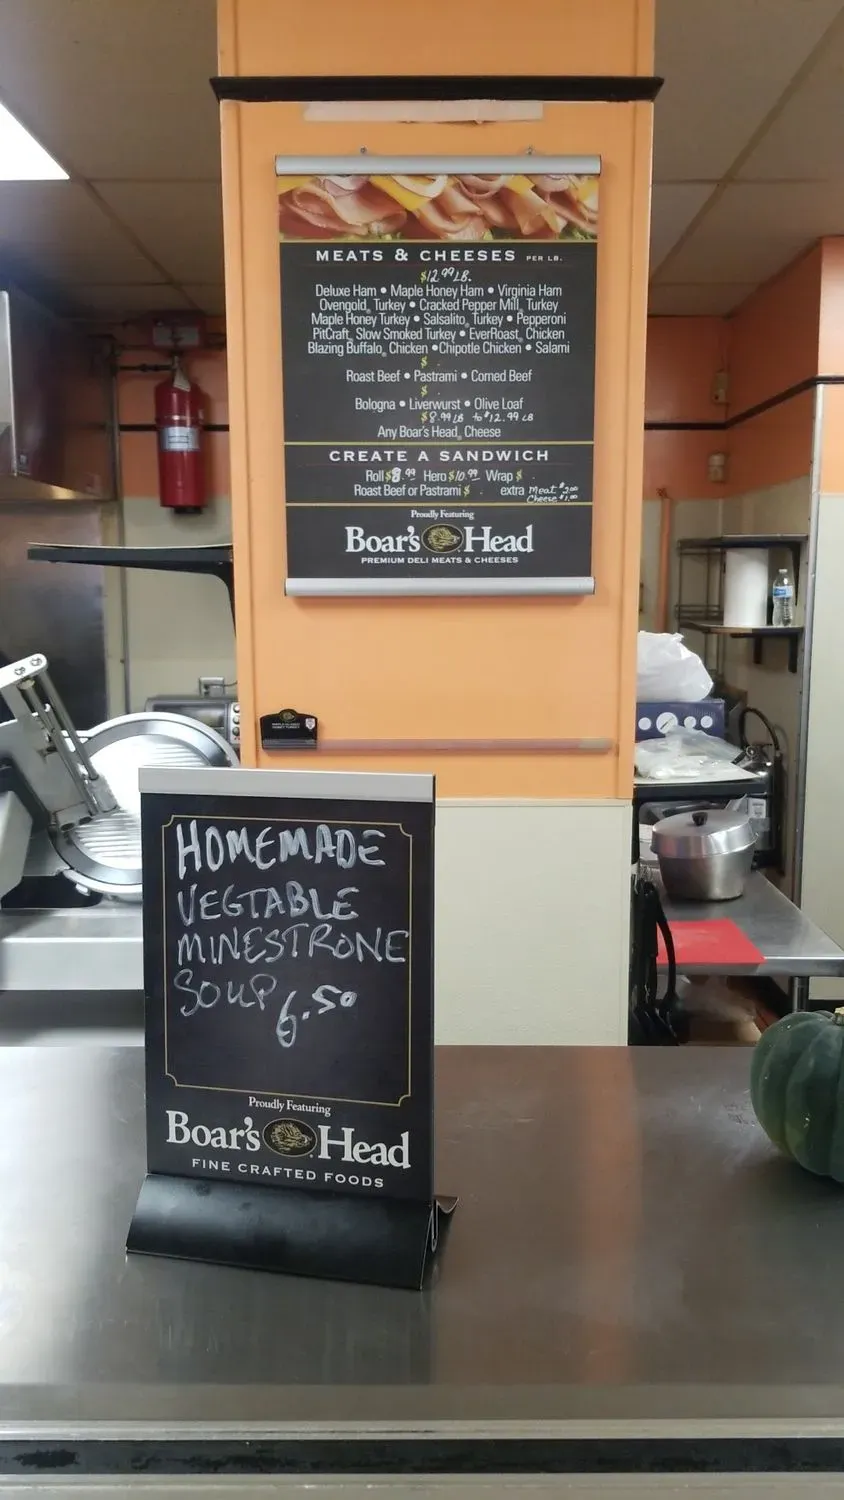 MEATS & CHEESES PER LB.
$12.99 LB.
Deluxe Ham • Maple Honey Ham • Virginia Ham
Ovengold® Turkey • Cracked Pepper Mill® Turkey
Maple Honey Turkey • Salsalito® Turkey • Pepperoni
PitCraft® Slow Smoked Turkey • EverRoast® Chicken
Blazing Buffalo® Chicken • Chipotle Chicken • Salami
$ .
Roast Beef • Pastrami • Corned Beef
$ .
Bologna • Liverwurst • Olive Loaf
$8.99 LB to $12.99 LB
Any Boar's Head® Cheese
CREATE A SANDWICH
Roll $8.99 Hero $10.99 Wrap $ .
Roast Beef or Pastrami $ . extra Meat $2.00
Cheese $1.00
Proudly Featuring
Boar's Head
PREMIUM DELI MEATS & CHEESES
HOMEMADE
VEGTABLE
MINESTRONE
SOUP 6.50
Proudly Featuring
Boar's Head
FINE CRAFTED FOODS